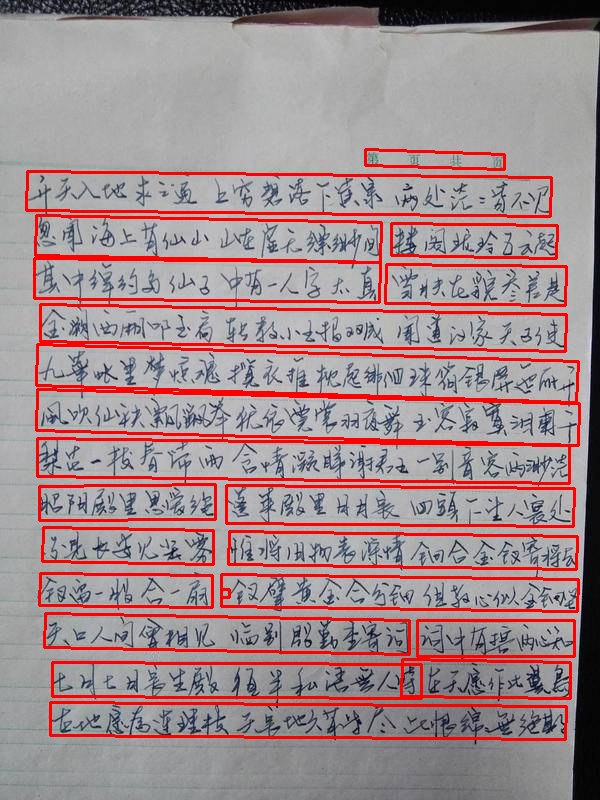 第 页 共 页
升天入地求之遍 上穷碧落下黄泉 两处茫茫皆不见
忽闻海上有仙山 山在虚无缥缈间 楼阁玲珑五云起
其中绰约多仙子 中有一人字太真 雪肤花貌参差是
金阙西厢叩玉扃 转教小玉报双成 闻道汉家天子使
九华帐里梦惊魂 揽衣推枕起徘徊 珠箔银屏迤
风吹仙袂飘飘举 犹似霓裳羽衣舞 玉容寂寞泪阑干
梨花一枝春带雨 含情凝睇谢君王 一别音容两渺茫
昭阳殿里恩爱绝 蓬莱殿里日月长 回头下望人寰处
不见长安见尘雾 惟将旧物表深情 钿合金钗寄将去
钗留一股合一扇 钗擘黄金合分钿 但教心似金钿坚
天上人间会相见 临别殷勤重寄词 词中有誓两心知
七月七日长生殿 夜半私语无人时 在天愿作比翼鸟
在地愿为连理枝 天长地久有时尽 此恨绵绵无绝期